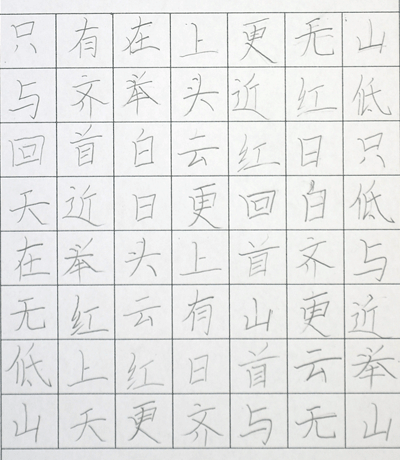 只有在上更无山
与齐举头近红低
回首白云红日只
天近日更回白低
在举头上首齐与
无红云有山更近
低上红日首云举
山天更齐与无山